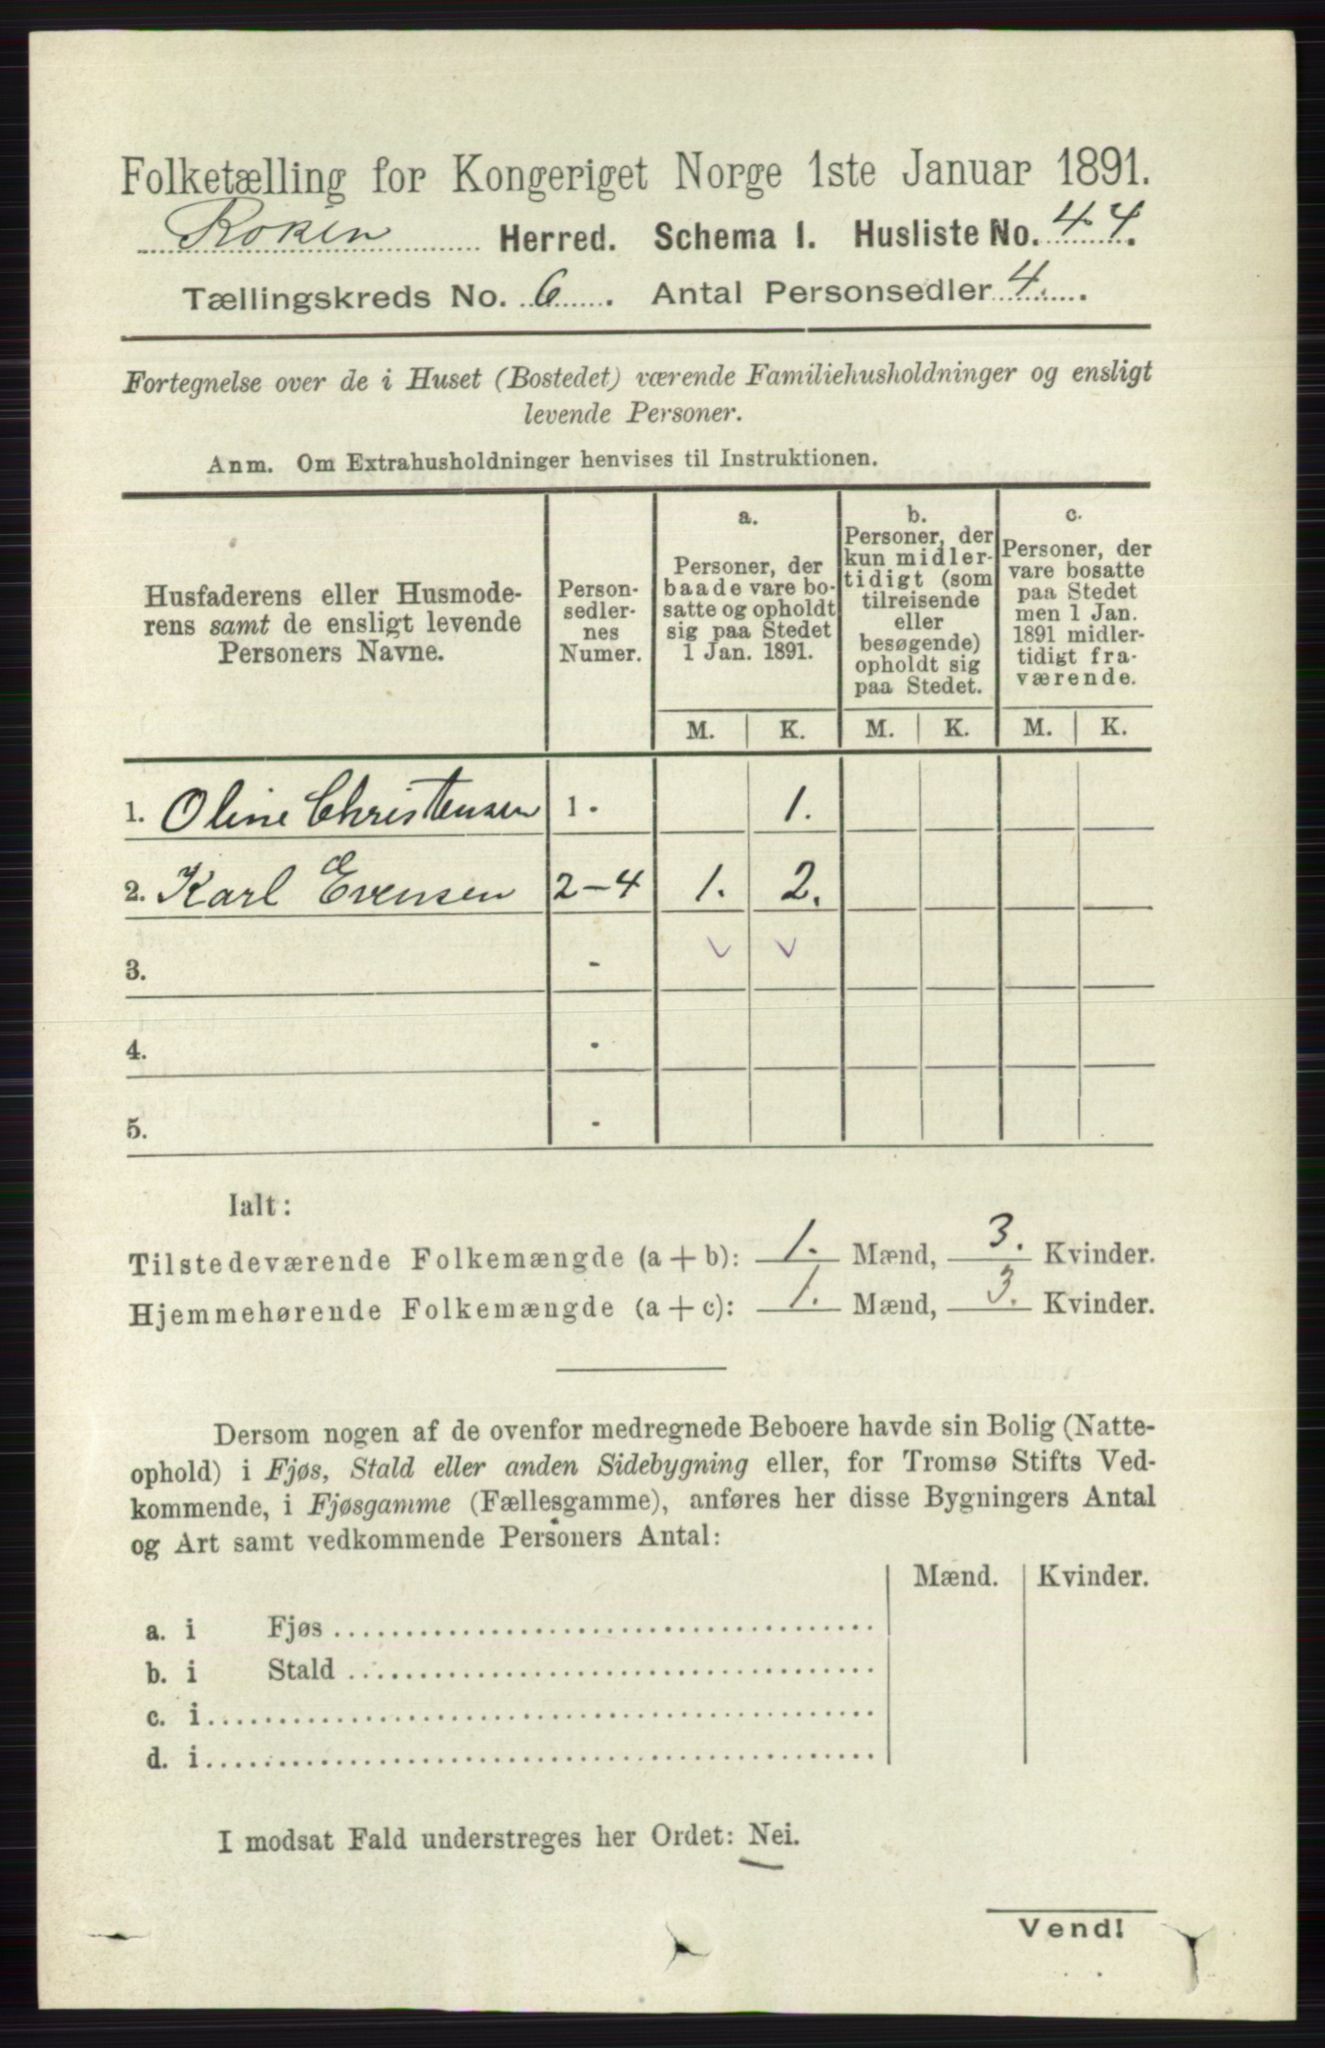 Folketælling for Kongeriget Norge 1ste Januar 1891.
Røken Herred. Schema I. Husliste No. 44.
Tællingskreds No. 6. Antal Personsedler 4.
Fortegnelse over de i Huset (Bostedet) værende Familiehusholdninger og ensligt
levende Personer.
Anm. Om Extrahusholdninger henvises til Instruktionen.
Husfaderens eller Husmode-
rens samt de ensligt levende
Personers Navne.
Person-
sedler-
nes
Numer.
a.
Personer, der
baade vare bo-
satte og opholdt
sig paa Stedet
1 Jan. 1891.
b.
Personer, der
kun midler-
tidigt (som
tilreisende
eller
besøgende)
opholdt sig
paa Stedet.
c.
Personer, der
vare bosatte
paa Stedet
men 1 Jan.
1891 midler-
tidigt fra-
værende.
M. K. M. K. M. K.
1. Oline Christensen 1 - 1.
2. Karl Evensen 2-4 1. 2.
3. -
4. -
5. -
Ialt:
Tilstedeværende Folkemængde (a + b): 1. Mænd, 3. Kvinder.
Hjemmehørende Folkemængde (a + c): 1. Mænd, 3. Kvinder.
Dersom nogen af de ovenfor medregnede Beboere havde sin Bolig (Natte-
ophold) i Fjøs, Stald eller anden Sidebygning eller, for Tromsø Stifts Ved-
kommende, i Fjøsgamme (Fællesgamme), anføres her disse Bygningers Antal
og Art samt vedkommende Personers Antal:
Mænd. Kvinder.
a. i Fjøs
b. i Stald
c. i
d. i
I modsat Fald understreges her Ordet: Nei.
Vend!